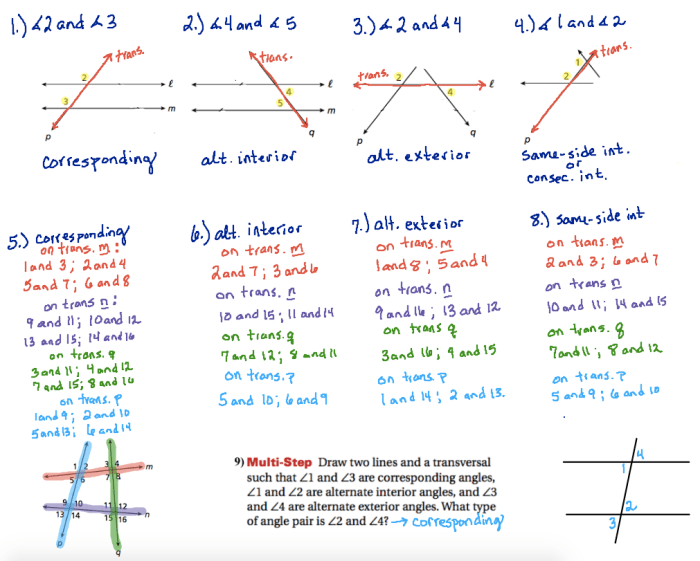 1.) ∡2 and ∡3
trans.
2
ℓ
3
m
p
corresponding
2.) ∡4 and ∡5
trans.
ℓ
4
5
m
q
alt. interior
3.) ∡2 and ∡4
trans. 2
ℓ
4
p
q
alt. exterior
4.) ∡1 and ∡2
trans.
1
2
p
same-side int.
or
consec. int.
5.) corresponding
on trans. m:
1 and 3; 2 and 4
5 and 7; 6 and 8
on trans n:
9 and 11; 10 and 12
13 and 15; 14 and 16
on trans. q
3 and 11; 4 and 12
7 and 15; 8 and 16
on trans. p
1 and 9; 2 and 10
5 and 13; 6 and 14
6.) alt. interior
on trans. m
2 and 7; 3 and 6
on trans. n
10 and 15; 11 and 14
on trans. q
7 and 12; 8 and 11
on trans. p
5 and 10; 6 and 9
7.) alt. exterior
on trans. m
1 and 8; 5 and 4
on trans. n
9 and 16; 13 and 12
on trans q
3 and 16; 4 and 15
on trans p
1 and 14; 2 and 13.
8.) same-side int
on trans. m
2 and 3; 6 and 7
on trans n
10 and 11; 14 and 15
on trans. q
7 and 11; 8 and 12
on trans. p
5 and 9; 6 and 10
1 2 3 4 m
5 6 7 8
9 10 11 12
13 14 15 16 n
p
q
9) Multi-Step Draw two lines and a transversal
such that ∠1 and ∠3 are corresponding angles,
∠1 and ∠2 are alternate interior angles, and ∠3
and ∠4 are alternate exterior angles. What type
of angle pair is ∠2 and ∠4? → corresponding
4
1
2
3